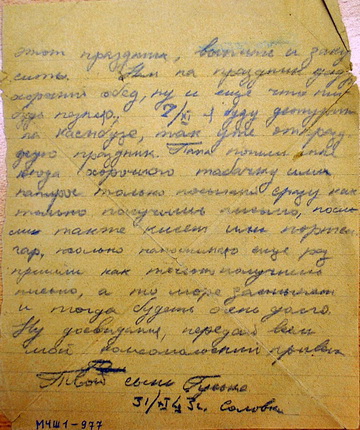 этот праздник, выпьте и заку
сить. Нам на праздник будет
хороший обед, ну и ещё что ни
будь
7/XI я буду дежурить
так уже отпразд
ную праздник. Папа пошли мне
сюда хорошего табачку или
папирос только посылай сразу как
только получишь письмо, пошли
также кисет или портси
гар, только напоминаю ещё раз
пришли как только получишь
письмо, а то море замёрзнет
и тогда будешь очень долго.
Ну досвидания, передай всем
мой комсомольский привет
Твой сын
31/ Соловки
МЧШ1-977